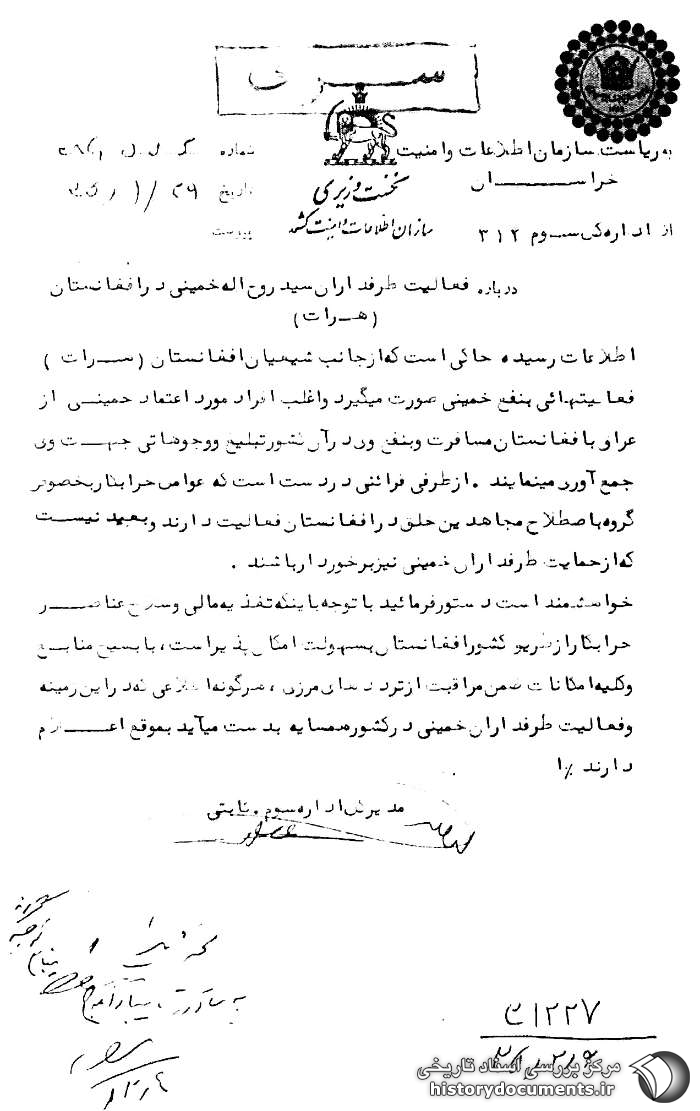 سری
به ریاست سازمان اطلاعات و امنیت خراسان
از اداره کل سوم ۳۱۲
نخست وزیری
سازمان اطلاعات و امنیت کشور
شماره
تاریخ
پیوست
درباره فعالیت طرفداران سید روح اله خمینی در افغانستان
(هرات)
اطلاعات رسیده حاکی است که از جانب شیعیان افغانستان (هرات)
فعالیتهائی بنفع خمینی صورت میگیرد و اغلب افراد مورد اعتماد خمینی از
عراق به افغانستان مسافرت و بنفع وی در آن کشور تبلیغ و وجوهاتی جهت وی
جمع آوری مینمایند . از طرفی قرائنی در دست است که عوامل خرابکار بخصوص
گروه باصطلاح مجاهدین خلق در افغانستان فعالیت دارند و بعید نیست
که از حمایت طرفداران خمینی نیز برخوردار باشند .
خواهشمند است دستور فرمائید با توجه باینکه تغذیه مالی و سلاح عناصر
خرابکار از طریق کشور افغانستان بسهولت امکان پذیر است ، با بسیج منابع
و کلیه امکانات ضمن مراقبت از ترددهای مرزی ، هرگونه اطلاعی که در این زمینه
و فعالیت طرفداران خمینی در کشور همسایه بدست میآید بموقع اعلام
دارند /.ا
مدیر کل اداره سوم . ثابتی
مرکز بررسی اسناد تاریخی
historydocuments.ir